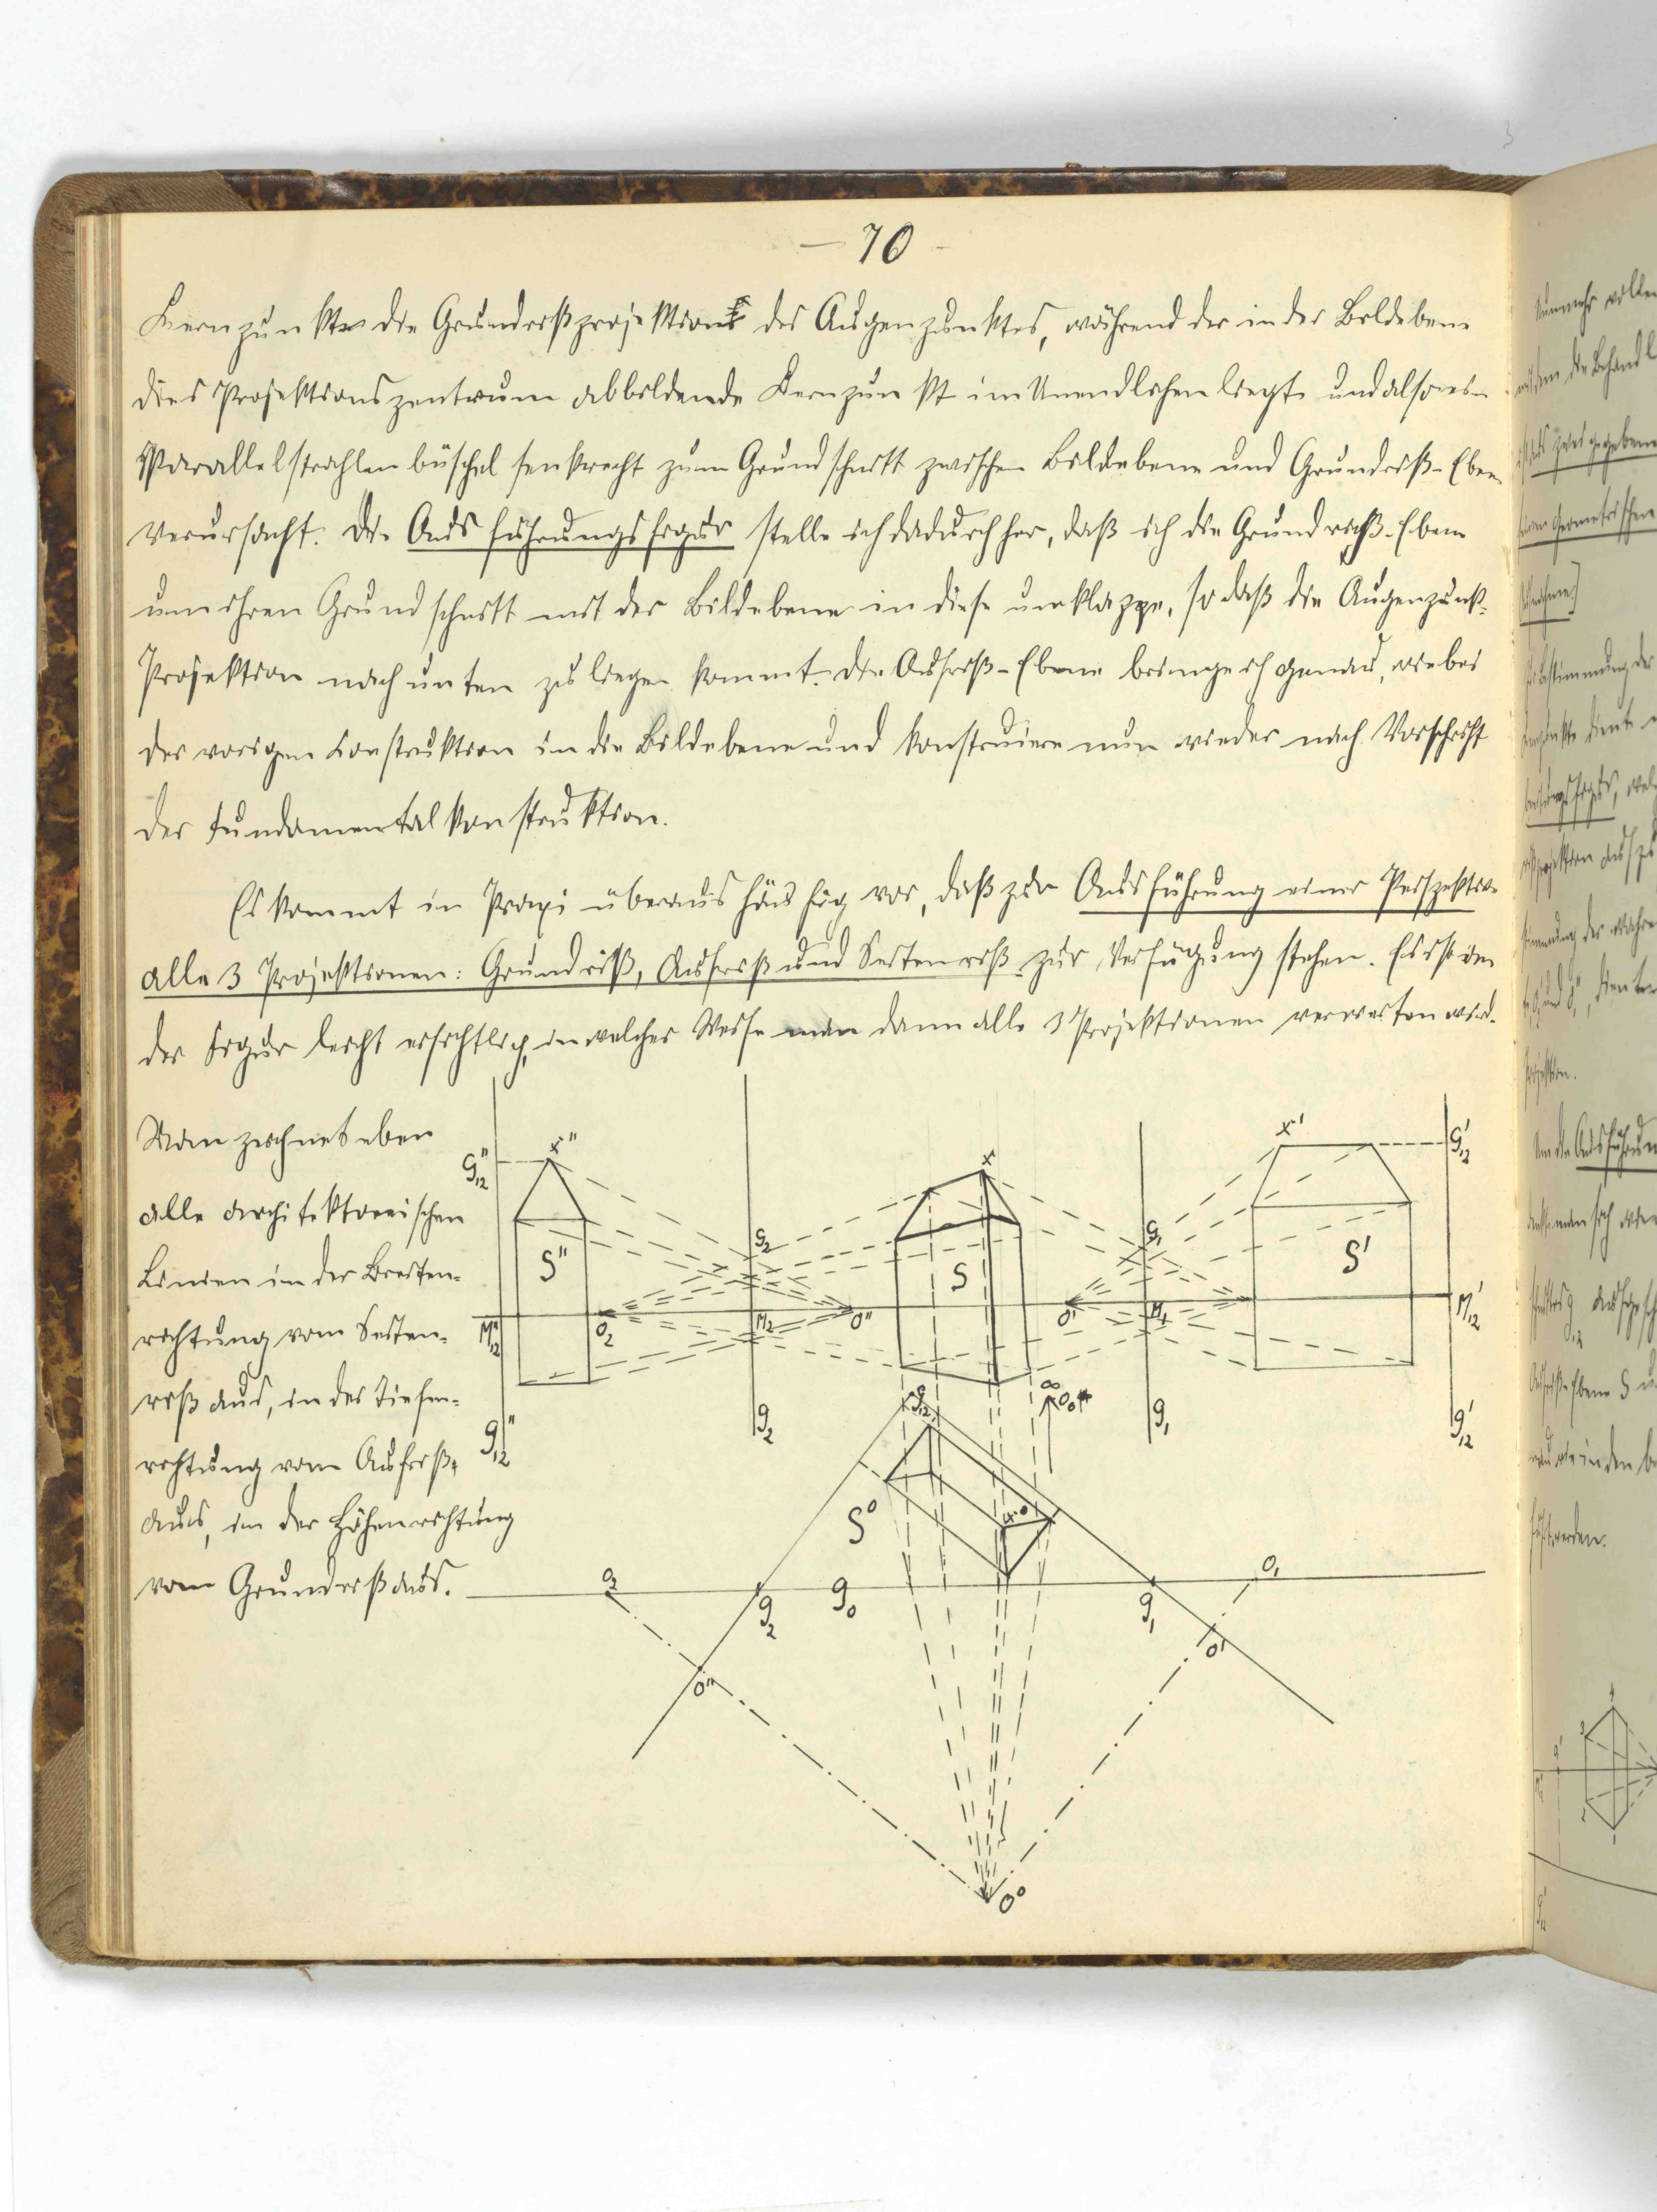 — 70 –
Kernpunkte die Grundrißprojektion des Augenpunktes, während der in der Bildebene
dies Projektionszentrum abbildende Kernpunkt im Unendlichen liegt und also ein
Parallelstrahlenbüschel senkrecht zum Grundschnitt zwischen Bildebene und Grundriß-Ebene
verursacht. Die Ausführungsfigur stelle ich dadurch her, daß ich die Grundriß-Ebene
um ihren Grundschnitt mit der Bildebene in diese umklappe, so daß die Augenpunkt-
Projektion nach unten zu liegen kommt. Die Aufriß-Ebene bringe ich genau, wie bei
der vorigen Konstruktion in die Bildebene und konstruiere nun wieder nach Vorschrift
der Fundamentalkonstruktion.
Es kommt in Praxi überaus häufig vor, daß zur Ausführung einer Perspektive
alle 3 Projektionen: Grundriß, Aufriß und Seitenriß zur Verfügung stehen. Es ist in
der Figur leicht ersichtlich, in welcher Weise man dann alle 3 Projektionen verwerten wird.
Man zeichnet eben
alle architektonischen
Linien in der Breiten-
richtung vom Seiten-
riß aus, in der Tiefen-
richtung vom Aufriß
aus, in der Höhenrichtung
vom Grundriß aus.
x" x x'
G"12 G2 G1 G'12
S" S S'
M"12 O2 M2 O" O' M1 M'12
g"12 g2 g1 g'12
g12 ∞ O0
S° x°
O2 g2 g0 g1 O1
O" O'
O°